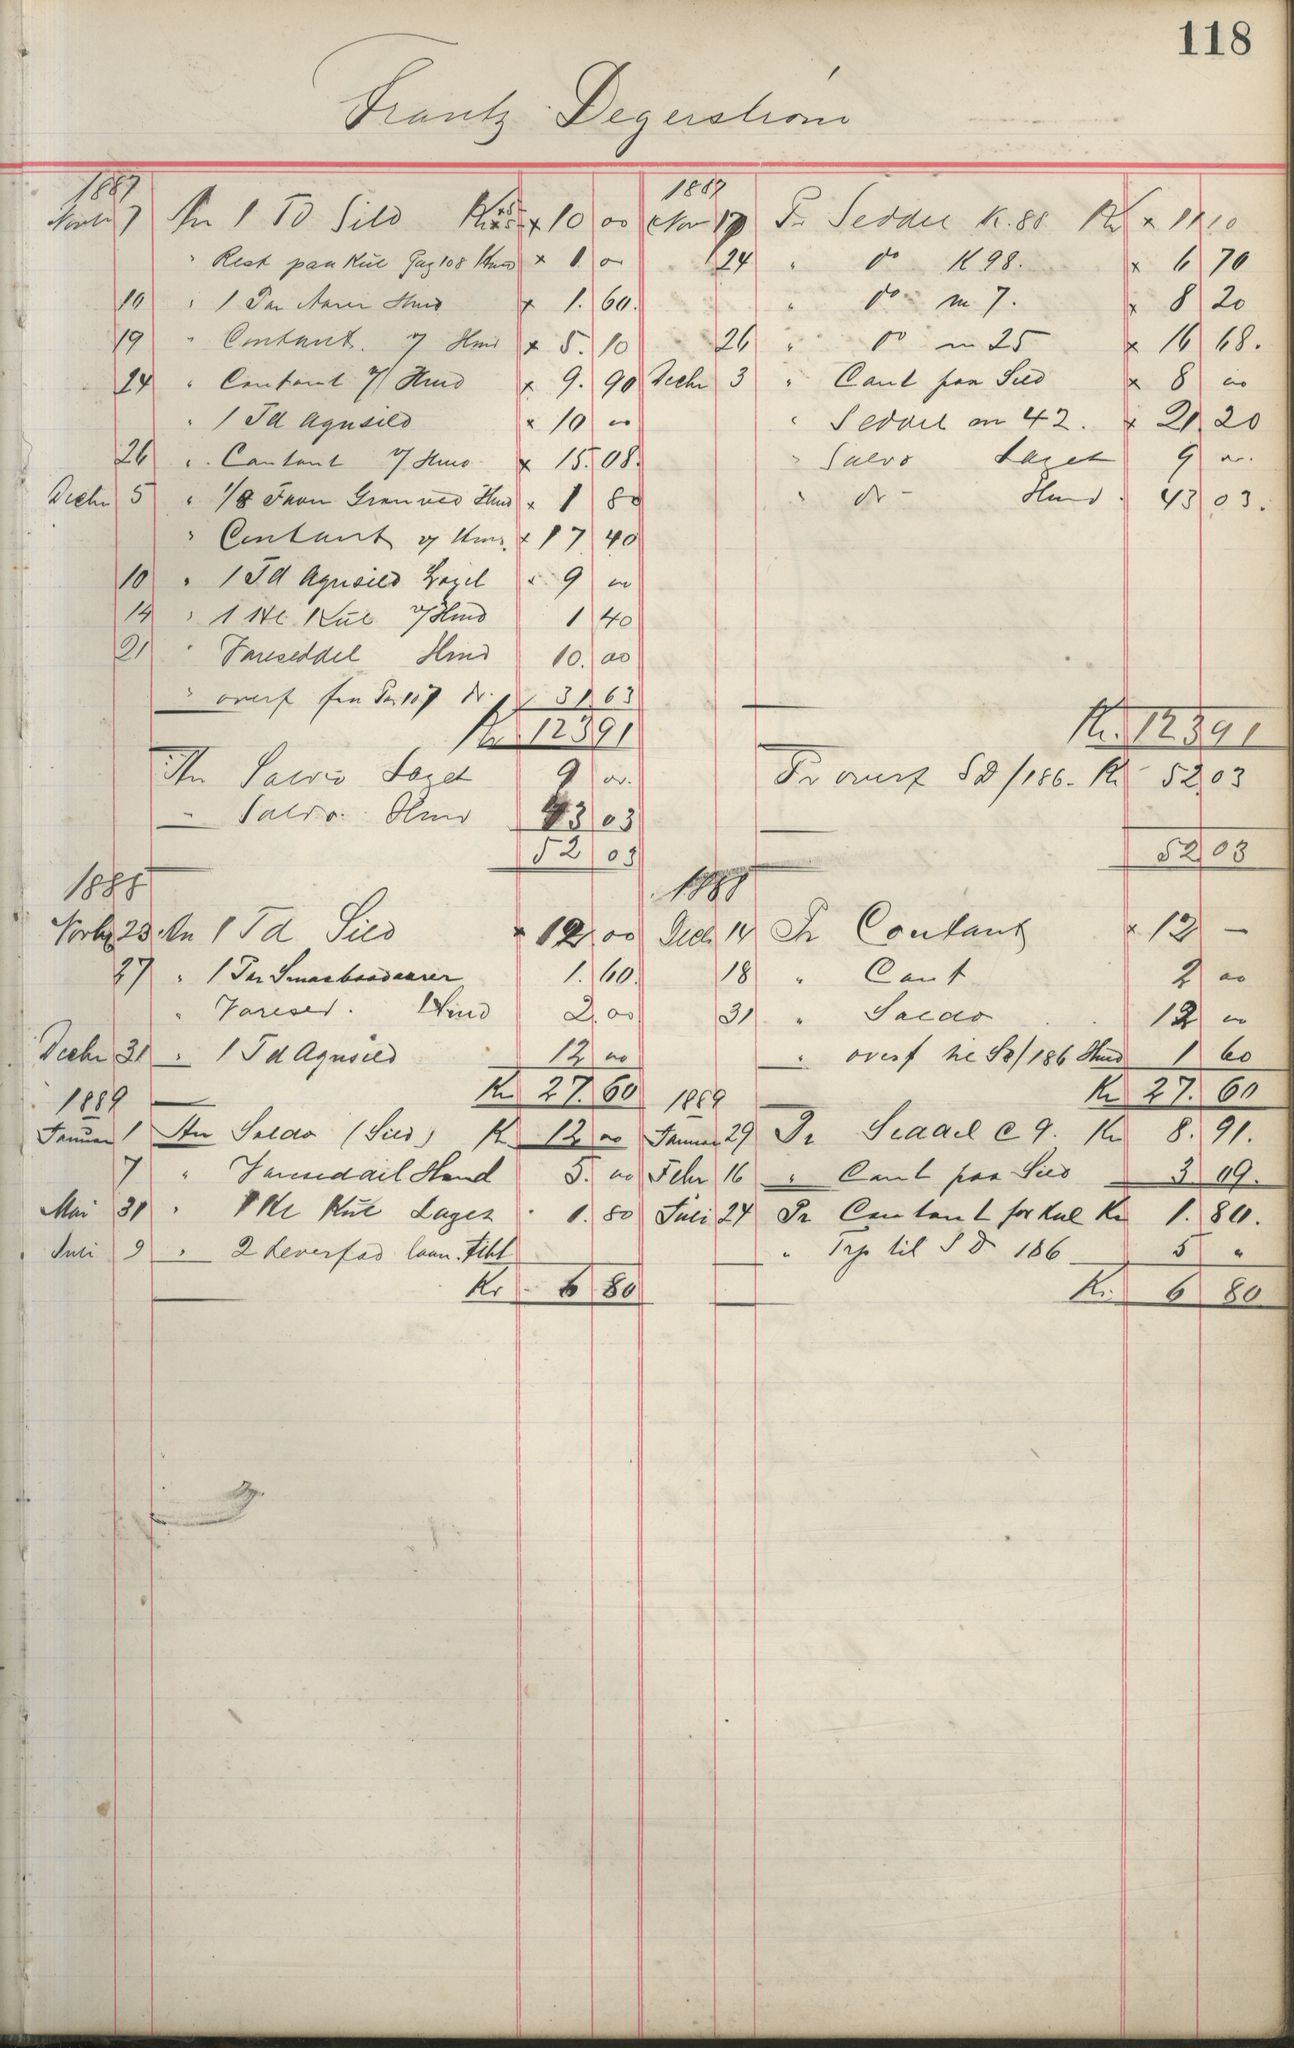 118
Frantz Degerstrøm
1887
Novbr 7 An 1 Td Sild Kr × 10 00
" Rest paa Kul Pag 108 Hmd × 1. 00
10 " 1 Par Aarer Hmd × 1. 60.
19 " Contant. 7 Hmd × 5. 10
24 " Contant 7/ Hmd × 9. 90
" 1 Td Agnsild × 10 00
26 " Contant 7/ Hmd × 15. 08.
Decbr 5 " 1/8 Favn Granved Hmd × 1 80
" Contant 7/ Hmd. × 17 40
10 " 1 Td Agnsild Laget × 9 00
14 " 1 Hl Kul 7/ Hmd 1 40
21 " Vareseddel Hmd 10. 00
" overf fra Pag 107 31 63
Kr 123 91
An Saldo Laget 9 00.
" Saldo. Hmd 43 03
52 03
1887
Nov 17 Pr Seddel K. 88 Kr × 11 10
24 " do K 98. × 6 70
" do m 7. × 8 20
26 " do m 25 × 16 68.
Decbr 3 " Cant paa Sild × 8 00
" Seddel m 42. × 21. 20
" Saldo Laget 9 00.
" do - Hmd. 43 03.
Kr. 123 91
Pr overf S D/186. Kr 52. 03
52 03
1888
Novbr 23 An 1 Td Sild × 12. 00
27 " 1 Par Smaabaadaarer 1. 60.
" Varesed. Hmd 2. 00
Decbr 31 " 1 Td Agnsild 12 00
Kr 27. 60
1888
Decb 14 Pr Contant × 12 —
18 " Cant 2 00
31 " Saldo 12 00
" overf til Sd/186 Hmd 1 60
Kr 27. 60
1889
Januar 1 An Saldo (Sild) Kr 12 00
7 " Hmd 5. 00
Mai 31 " 1 Hl Kul Laget 1. 80
Juli 9 " 2 Leverfad laan. Tibt
Kr 6 80
1889
Januar 29 Pr Seddel C 9. Kr 8. 91.
Febr 16 " Cant paa Sild 3 09.
Juli 24 Pr Contant for Kul Kr 1. 80.
" Trp til S D 186 5 "
Kr. 6 80